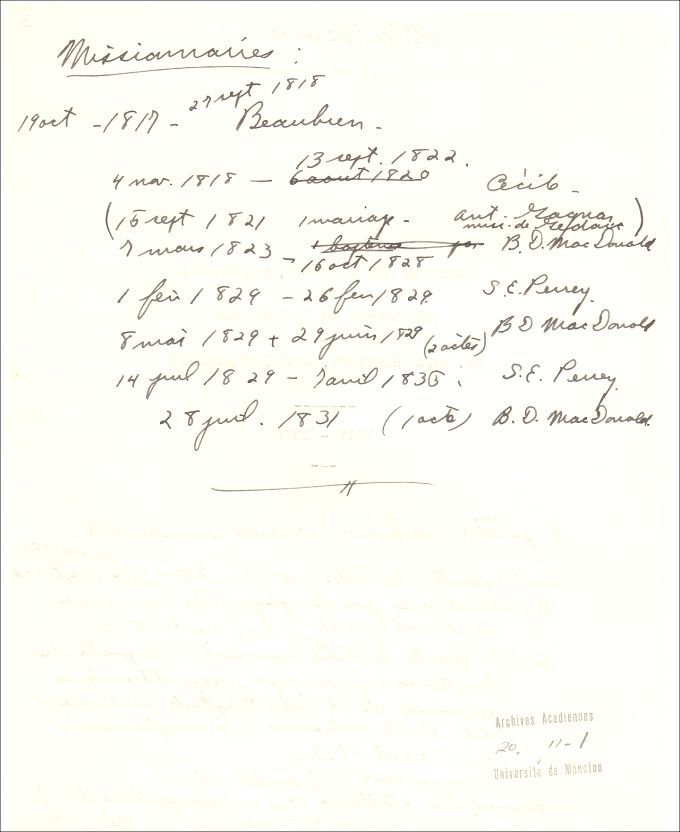 Missionnaires :
27 sept 1818
19 oct - 1817 - Beaubien -
13 sept. 1822.
4 nov. 1818 — 6 aout 1820 Cécile -
(15 sept 1821 1 mariage - Ant. Gagnon
miss. de Gédaic)
7 mars 1823 - 1 baptême par B. D. MacDonald
16 oct 1828
1 fev 1829 - 26 fev 1829 S. E. Perrey.
8 mai 1829 + 29 juin 1829 (2 actes) B D MacDonald
14 juil 1829 - 7 avril 1835. S. E. Perrey
28 juil. 1831 (1 acte) B. D. MacDonald.
Archives Acadiennes
20. 11-1
Université de Moncton